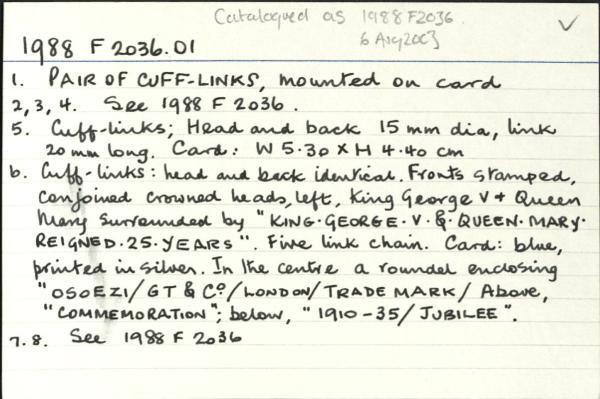 Catalogued as 1988 F2036.
6 Aug 2003
1988 F 2036.01
1. PAIR OF CUFF-LINKS, mounted on card
2, 3, 4. See 1988 F 2036.
5. Cuff-links; Head and back 15 mm dia, link
20 mm long. Card: W 5.30 X H 4.40 cm
6. Cuff-links: head and back identical. Fronts stamped,
conjoined crowned heads, left, King George V + Queen
Mary surrounded by "KING·GEORGE·V·&·QUEEN·MARY·
REIGNED·25·YEARS". Five link chain. Card: blue,
printed in silver. In the centre a roundel enclosing
"OSOEZI/GT & Cº/LONDON/TRADE MARK/ Above,
"COMMEMORATION"; below, "1910-35/JUBILEE".
7.8. See 1988 F 2036